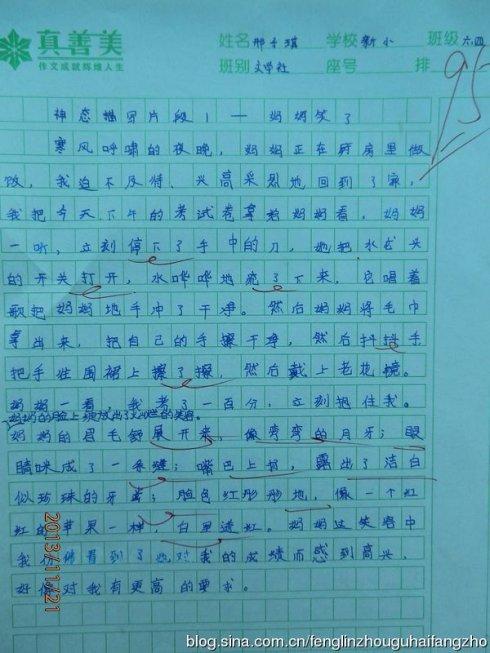 真善美
作文成就辉煌人生
姓名 邢千琪 学校 新小 班级 六.四
班别 文学社 座号 排
95
神态描写片段1——妈妈笑了
寒风呼啸的夜晚，妈妈正在厨房里做
饭，我迫不及待、兴高采烈地回到了家，
我把今天下午的考试卷拿给妈妈看，妈妈
一听，立刻停下了手中的刀，她把水龙头
的开关打开，水哗哗地流了下来，它唱着
歌把妈妈地手冲了干净。然后妈妈将毛巾
拿出来，把自己的手擦干净，然后抖抖手
把手往围裙上擦了擦，然后戴上老花镜。
妈妈一看，我考了一百分，立刻抱住我。
妈妈的脸上绽放出了灿烂的笑容。
妈妈的眉毛舒展开来，像弯弯的月牙；眼
睛眯成了一条缝；嘴巴上扬，露出了洁白
似珍珠的牙齿；脸色红彤彤地，像一个红
红的苹果一样，白里透红。妈妈这笑容中
我仿佛看到了她对我的成绩而感到高兴，
好像对我有更高的要求。
2013/11/21
blog.sina.com.cn/fenglinzhouguhaifangzho